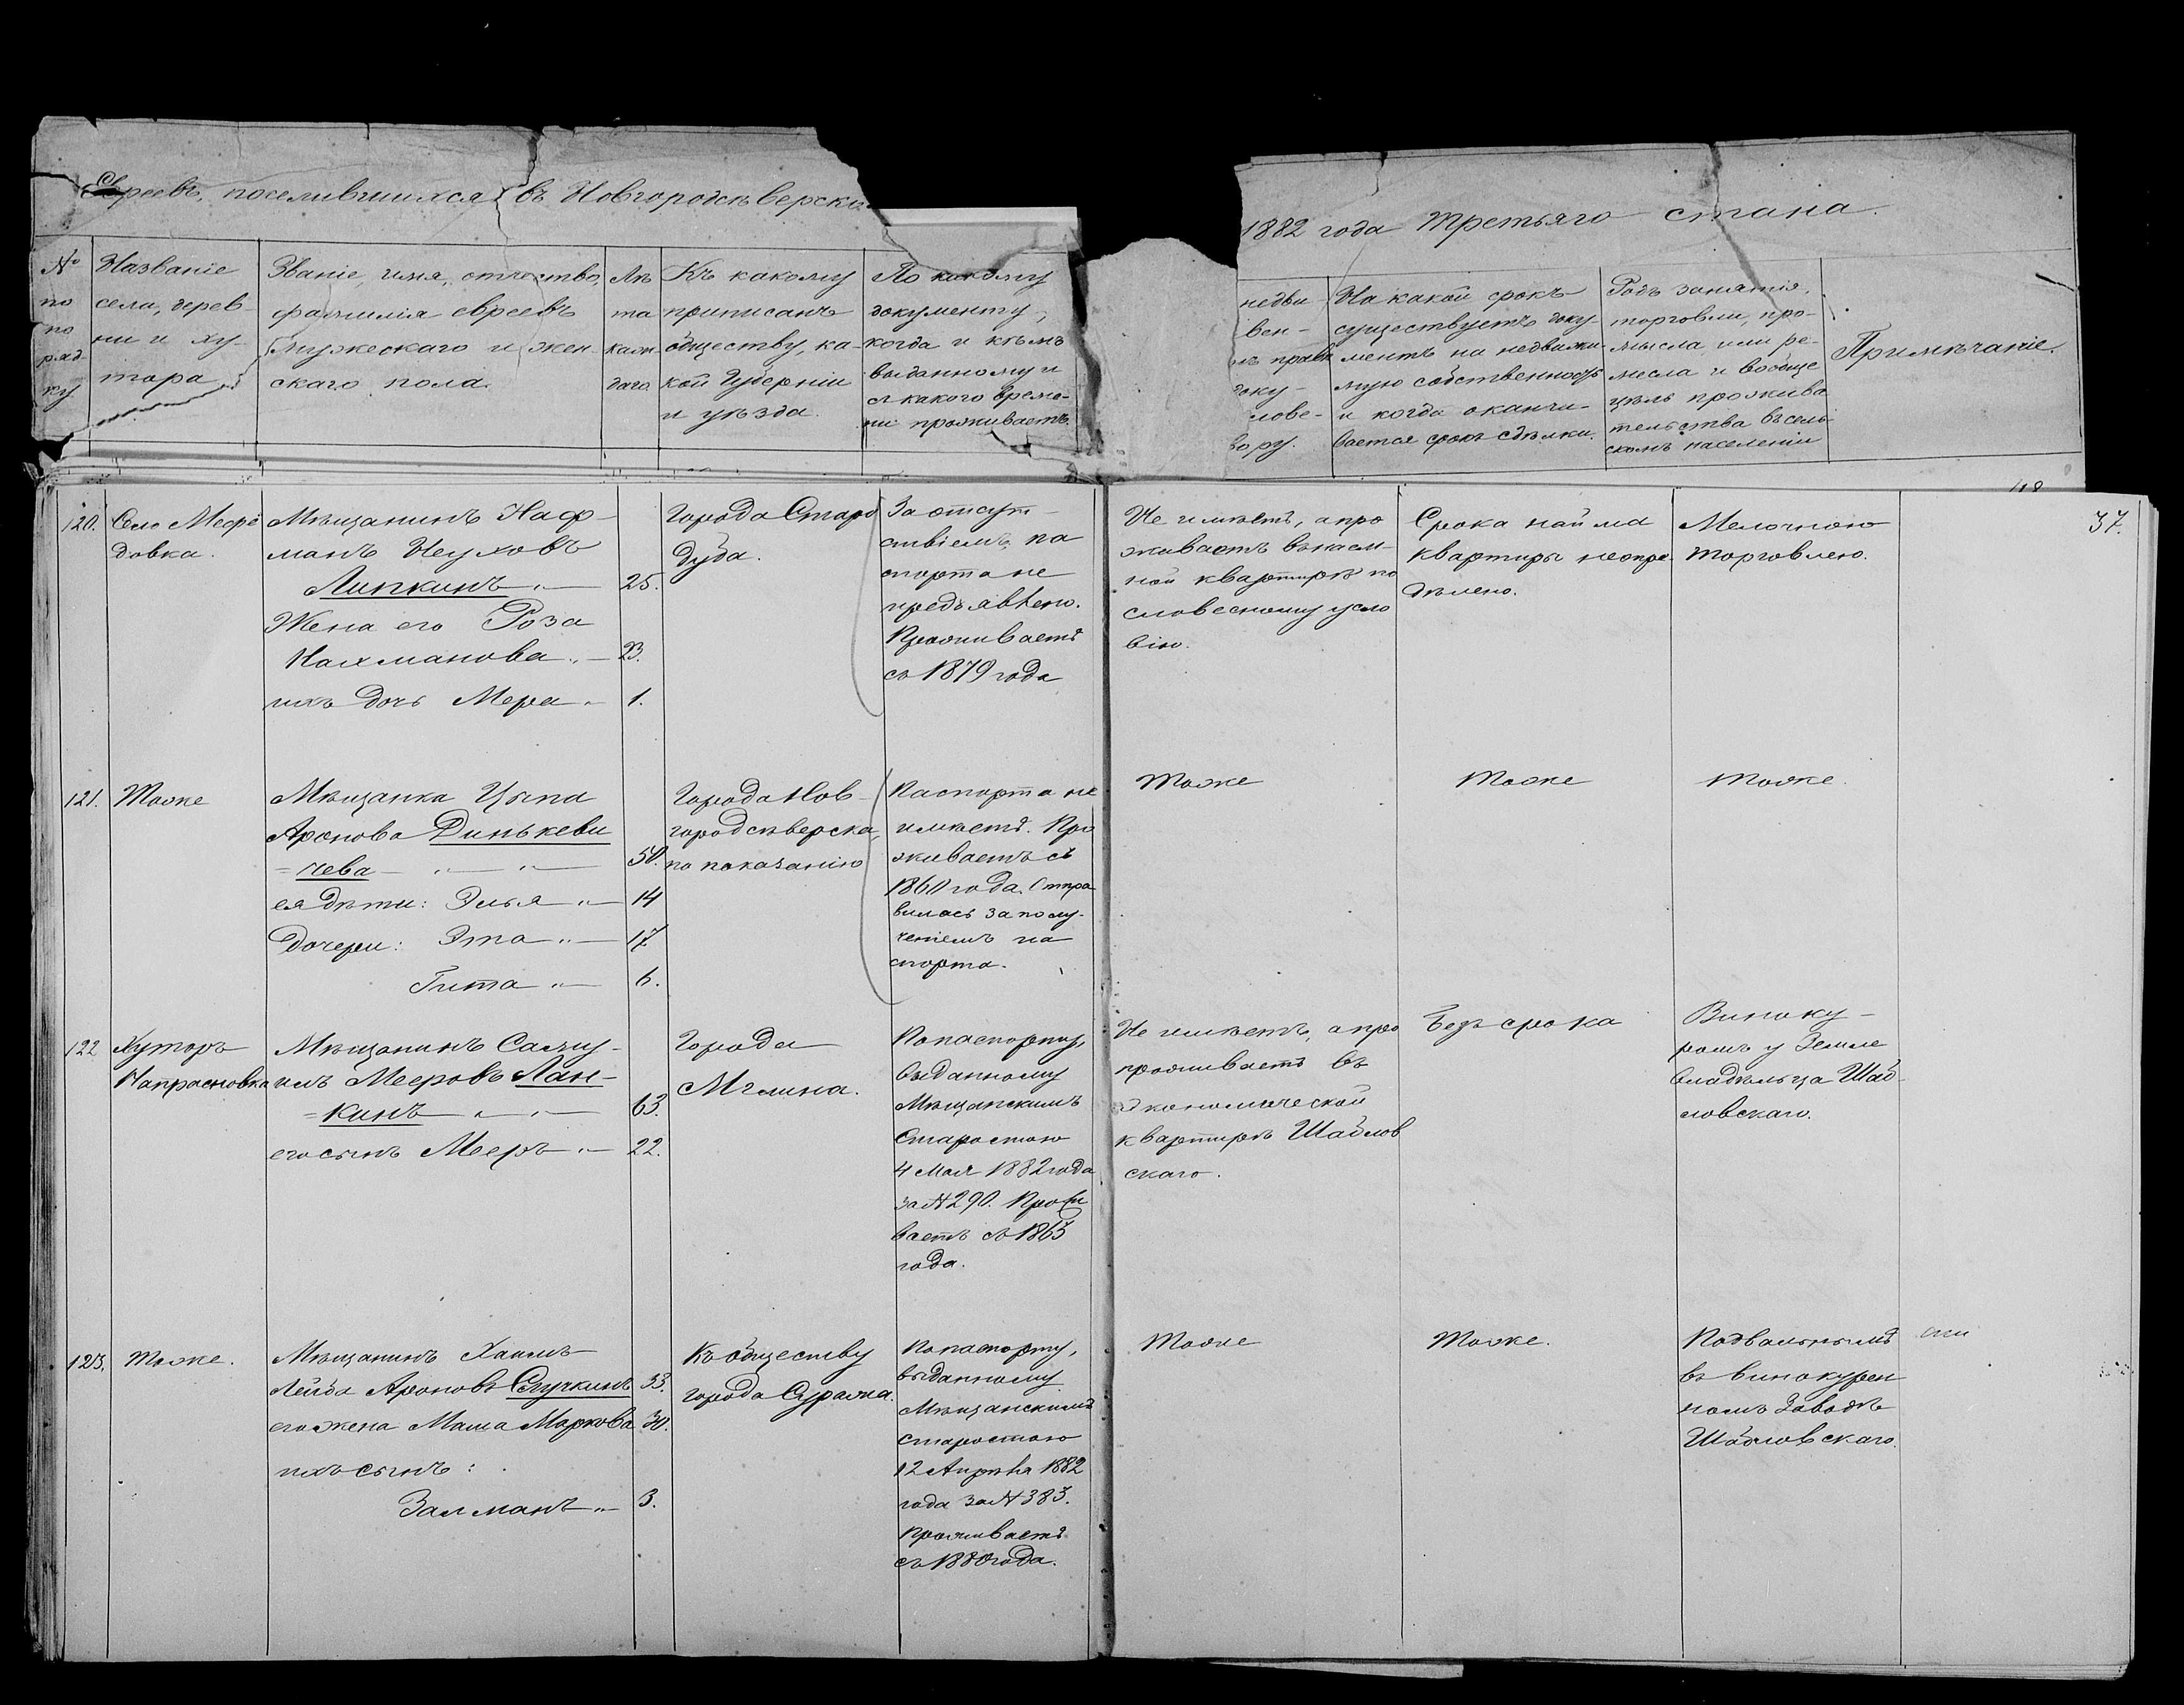 Евреевъ, поселившихся въ Новгородсѣверско
1882 года третьяго стана.
№ по по ряд- ку
Названіе
села, дерев-
ни и ху-
тора
Званіе, имя, отчество,
фамилія евреевъ
мужескаго и жен-
скаго пола.
Лѣ
та
каж
даго
Къ какому
приписанъ
обществу, ка-
кой Губерніи
и уѣзда.
По какому
документу,
когда и кѣмъ
выданному и
съ какого време-
ни проживаетъ.
недви
вен-
правѣ
доку-
слове-
вору.
На какой срокъ
существуетъ доку-
ментъ на недвижи-
мую собственность
и когда оканчи-
вается срокъ сдѣлки.
Родъ занятія,
торговли, про-
мысла или ре-
месла и вообще
цѣль прожива
тельства въ сель-
скомъ населеніи
Примѣчаніе.
37.
120.
Село Мефе
довка.
Мѣщанинъ Наф-
манъ Неуховъ
Липкинъ 25.
Жена его Роза
Нахманова 23.
ихъ дочь Мера 1.
Города Старо
дуба.
За отсут-
ствіемъ па
спорта не
предъявлено.
Проживаетъ
съ 1879 года
Не имѣетъ, а про
живаетъ въ наем-
ной квартирѣ по
словесному усло
вію.
Срока найма
квартиры неопре
дѣлено.
Мелочною
торговлею.
121.
Тоже
Мѣщанка Цыпа
Аронова Динькеви
=чева 50.
ея дѣти: Элья 14
Дочери: Эта 17
Гита 6.
Города Нов-
городсѣверска,
по показанію
Паспорта не
имѣетъ. Про
живаетъ съ
1860 года. Отпра
вилась за полу-
ченіемъ па
спорта.
Тоже
Тоже
Тоже.
122
Хуторъ
Напрасновка
Мѣщанинъ Саму-
илъ Мееровъ Лан-
=кинъ 63.
его сынъ Мееръ 22.
Города
Мглина.
По паспорту,
выданному
Мѣщанскимъ
Старостою
4 Мая 1882 года
за № 290. Прожи
ваетъ съ 1863
года.
Не имѣетъ, а про
проживаетъ въ
экономической
квартирѣ Шаблов
скаго.
Безъ срока
Виноку-
ромъ у Земле
владѣльца Шаб-
ловскаго.
123.
Тоже.
Мѣщанинъ Хаимъ
Лейба Ароновъ Слуцкинъ 33.
его жена Маша Маркова 30.
ихъ сынъ:
Залманъ 3.
Къ обществу
города Суража.
По паспорту,
выданному
Мѣщанскимъ
старостою
12 Апрѣля 1882
года за № 383.
Проживаетъ
съ 1880 года.
Тоже
Тоже.
Подвальнымъ
въ винокурен
номъ Заводѣ
Шабловскаго.